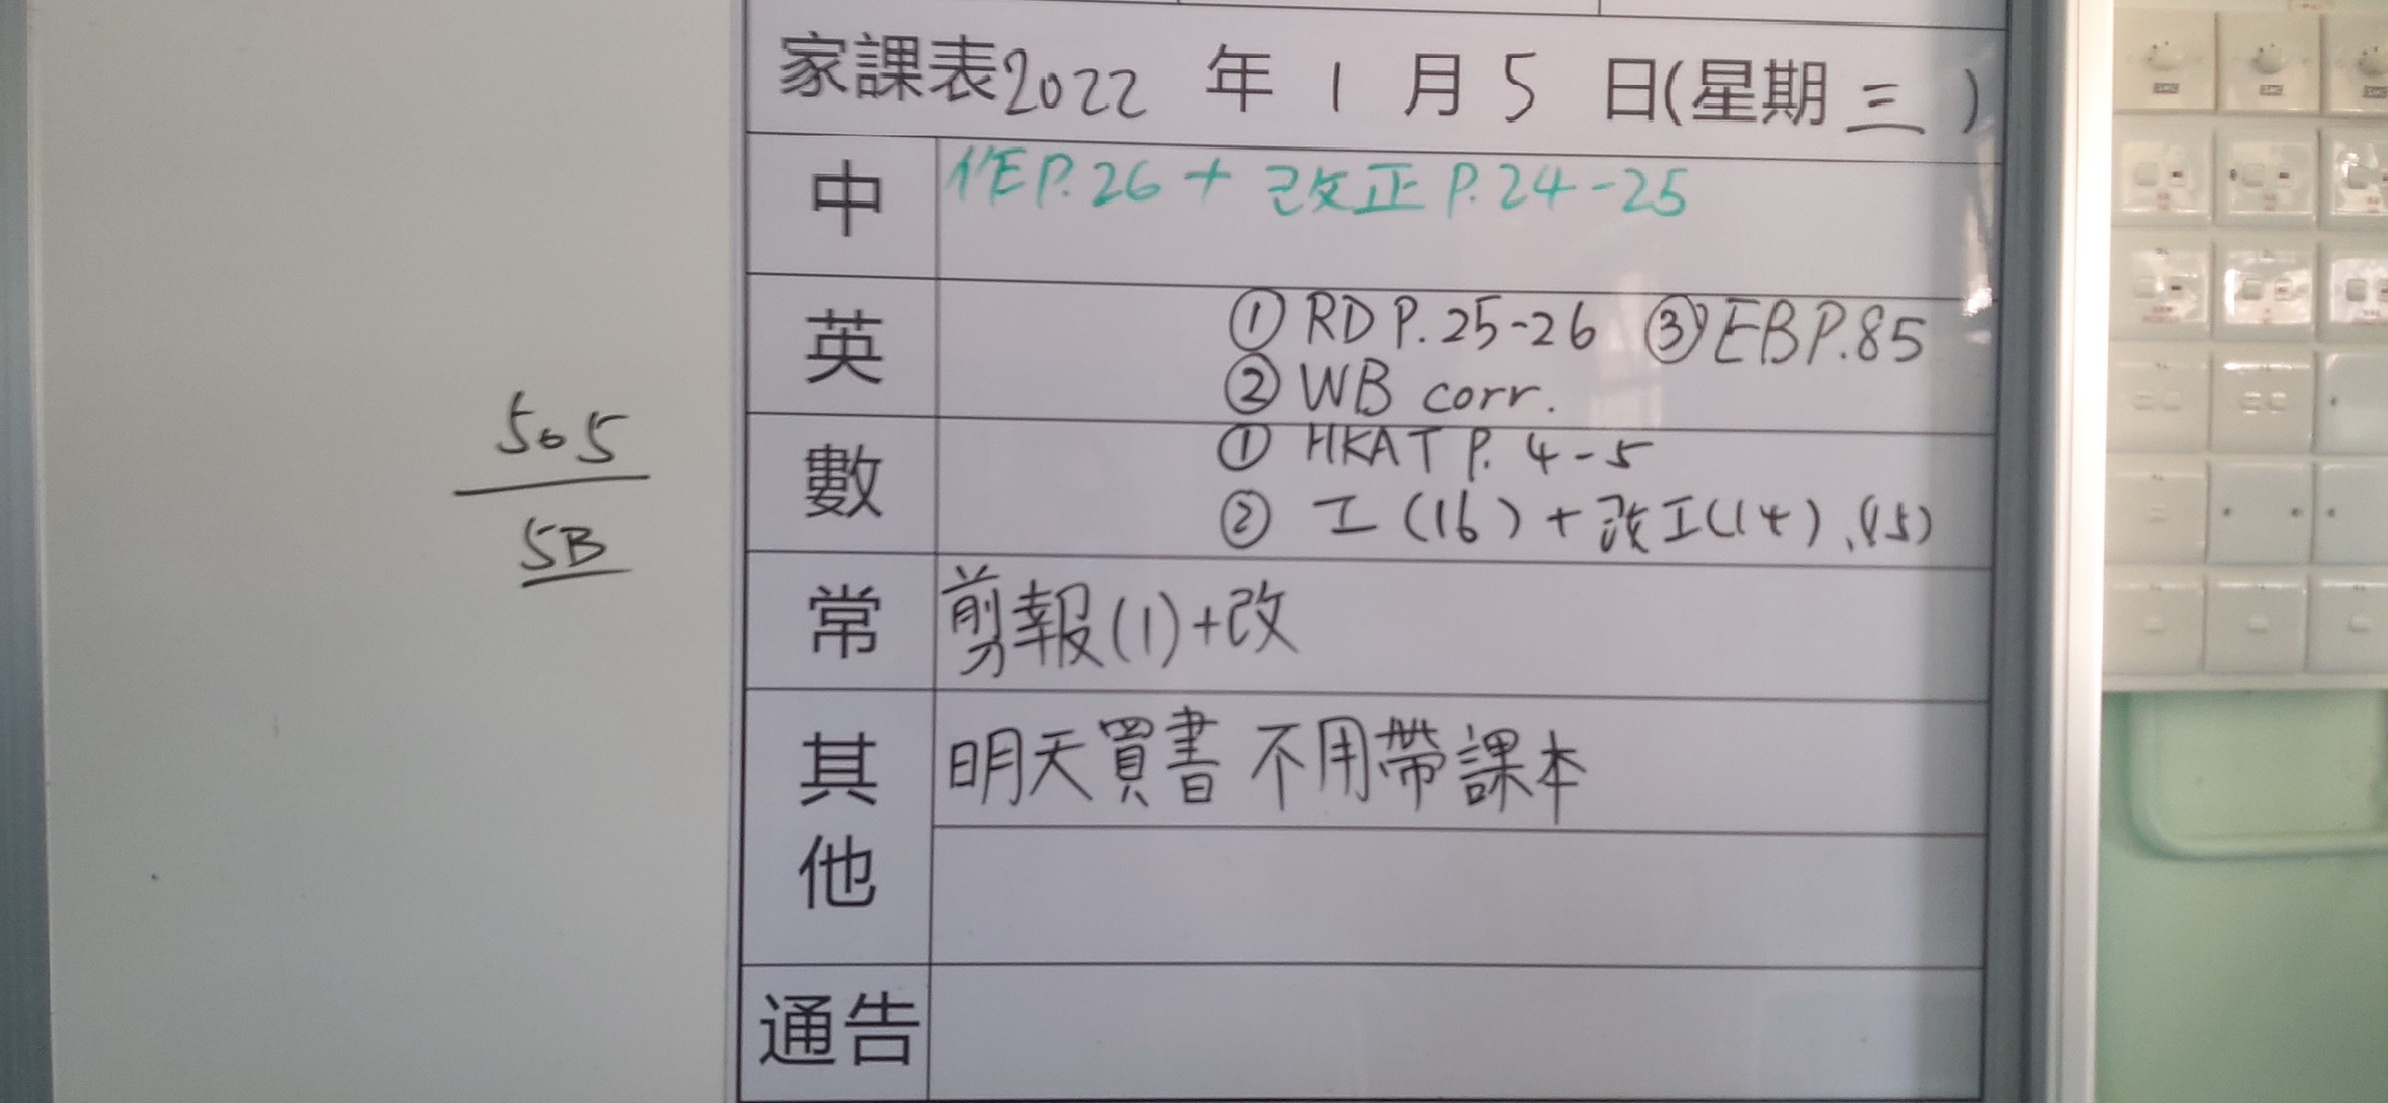 家課表2022 年 1 月 5 日(星期三)
中 作P.26 + 改正 P.24-25
英 ① RD P.25-26 ③ EB P.85
② WB corr.
數 ① HKAT P. 4-5
② 工(16)+改工(14)、(15)
常 剪報(1)+改
其他 明天買書 不用帶課本
通告
505
5B